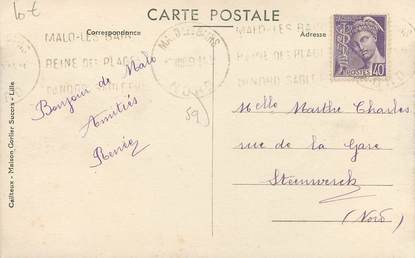 10 €
CARTE POSTALE
Correspondance
Adresse
MALO-LES-BAINS
REINE DES PLAGES
DU NORD
MALO-LES-BAINS
NORD
MALO-LES-BAINS
REINE DES PLAGES
DU NORD
40
POSTES
Bonjour de Malo
Amitiés
Renée
59
Melle Marthe Charles
rue de la Gare
Steenwerck
(Nord)
Cailteux - Maison Carlier Succrs - Lille